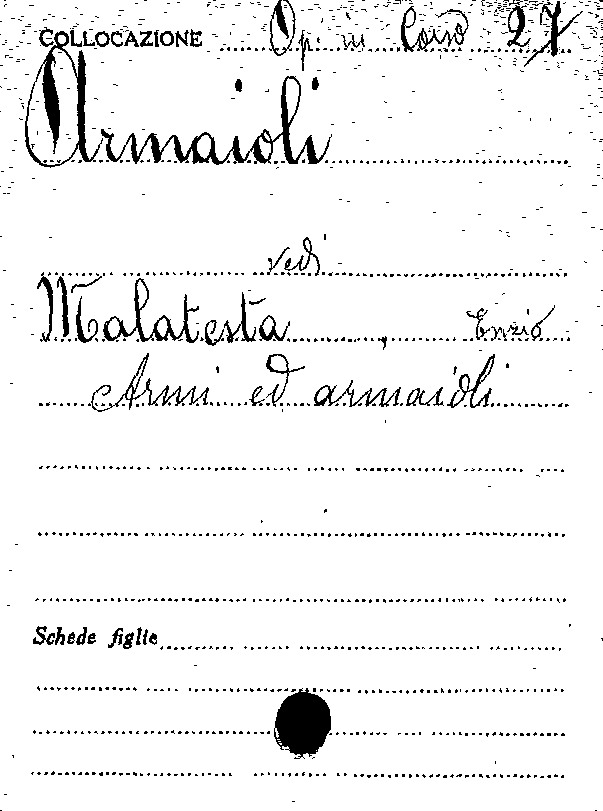 COLLOCAZIONE Op. in Corso 27
Armaioli
vedi
Malatesta, Enzio
Armi ed armaioli
Schede figlie